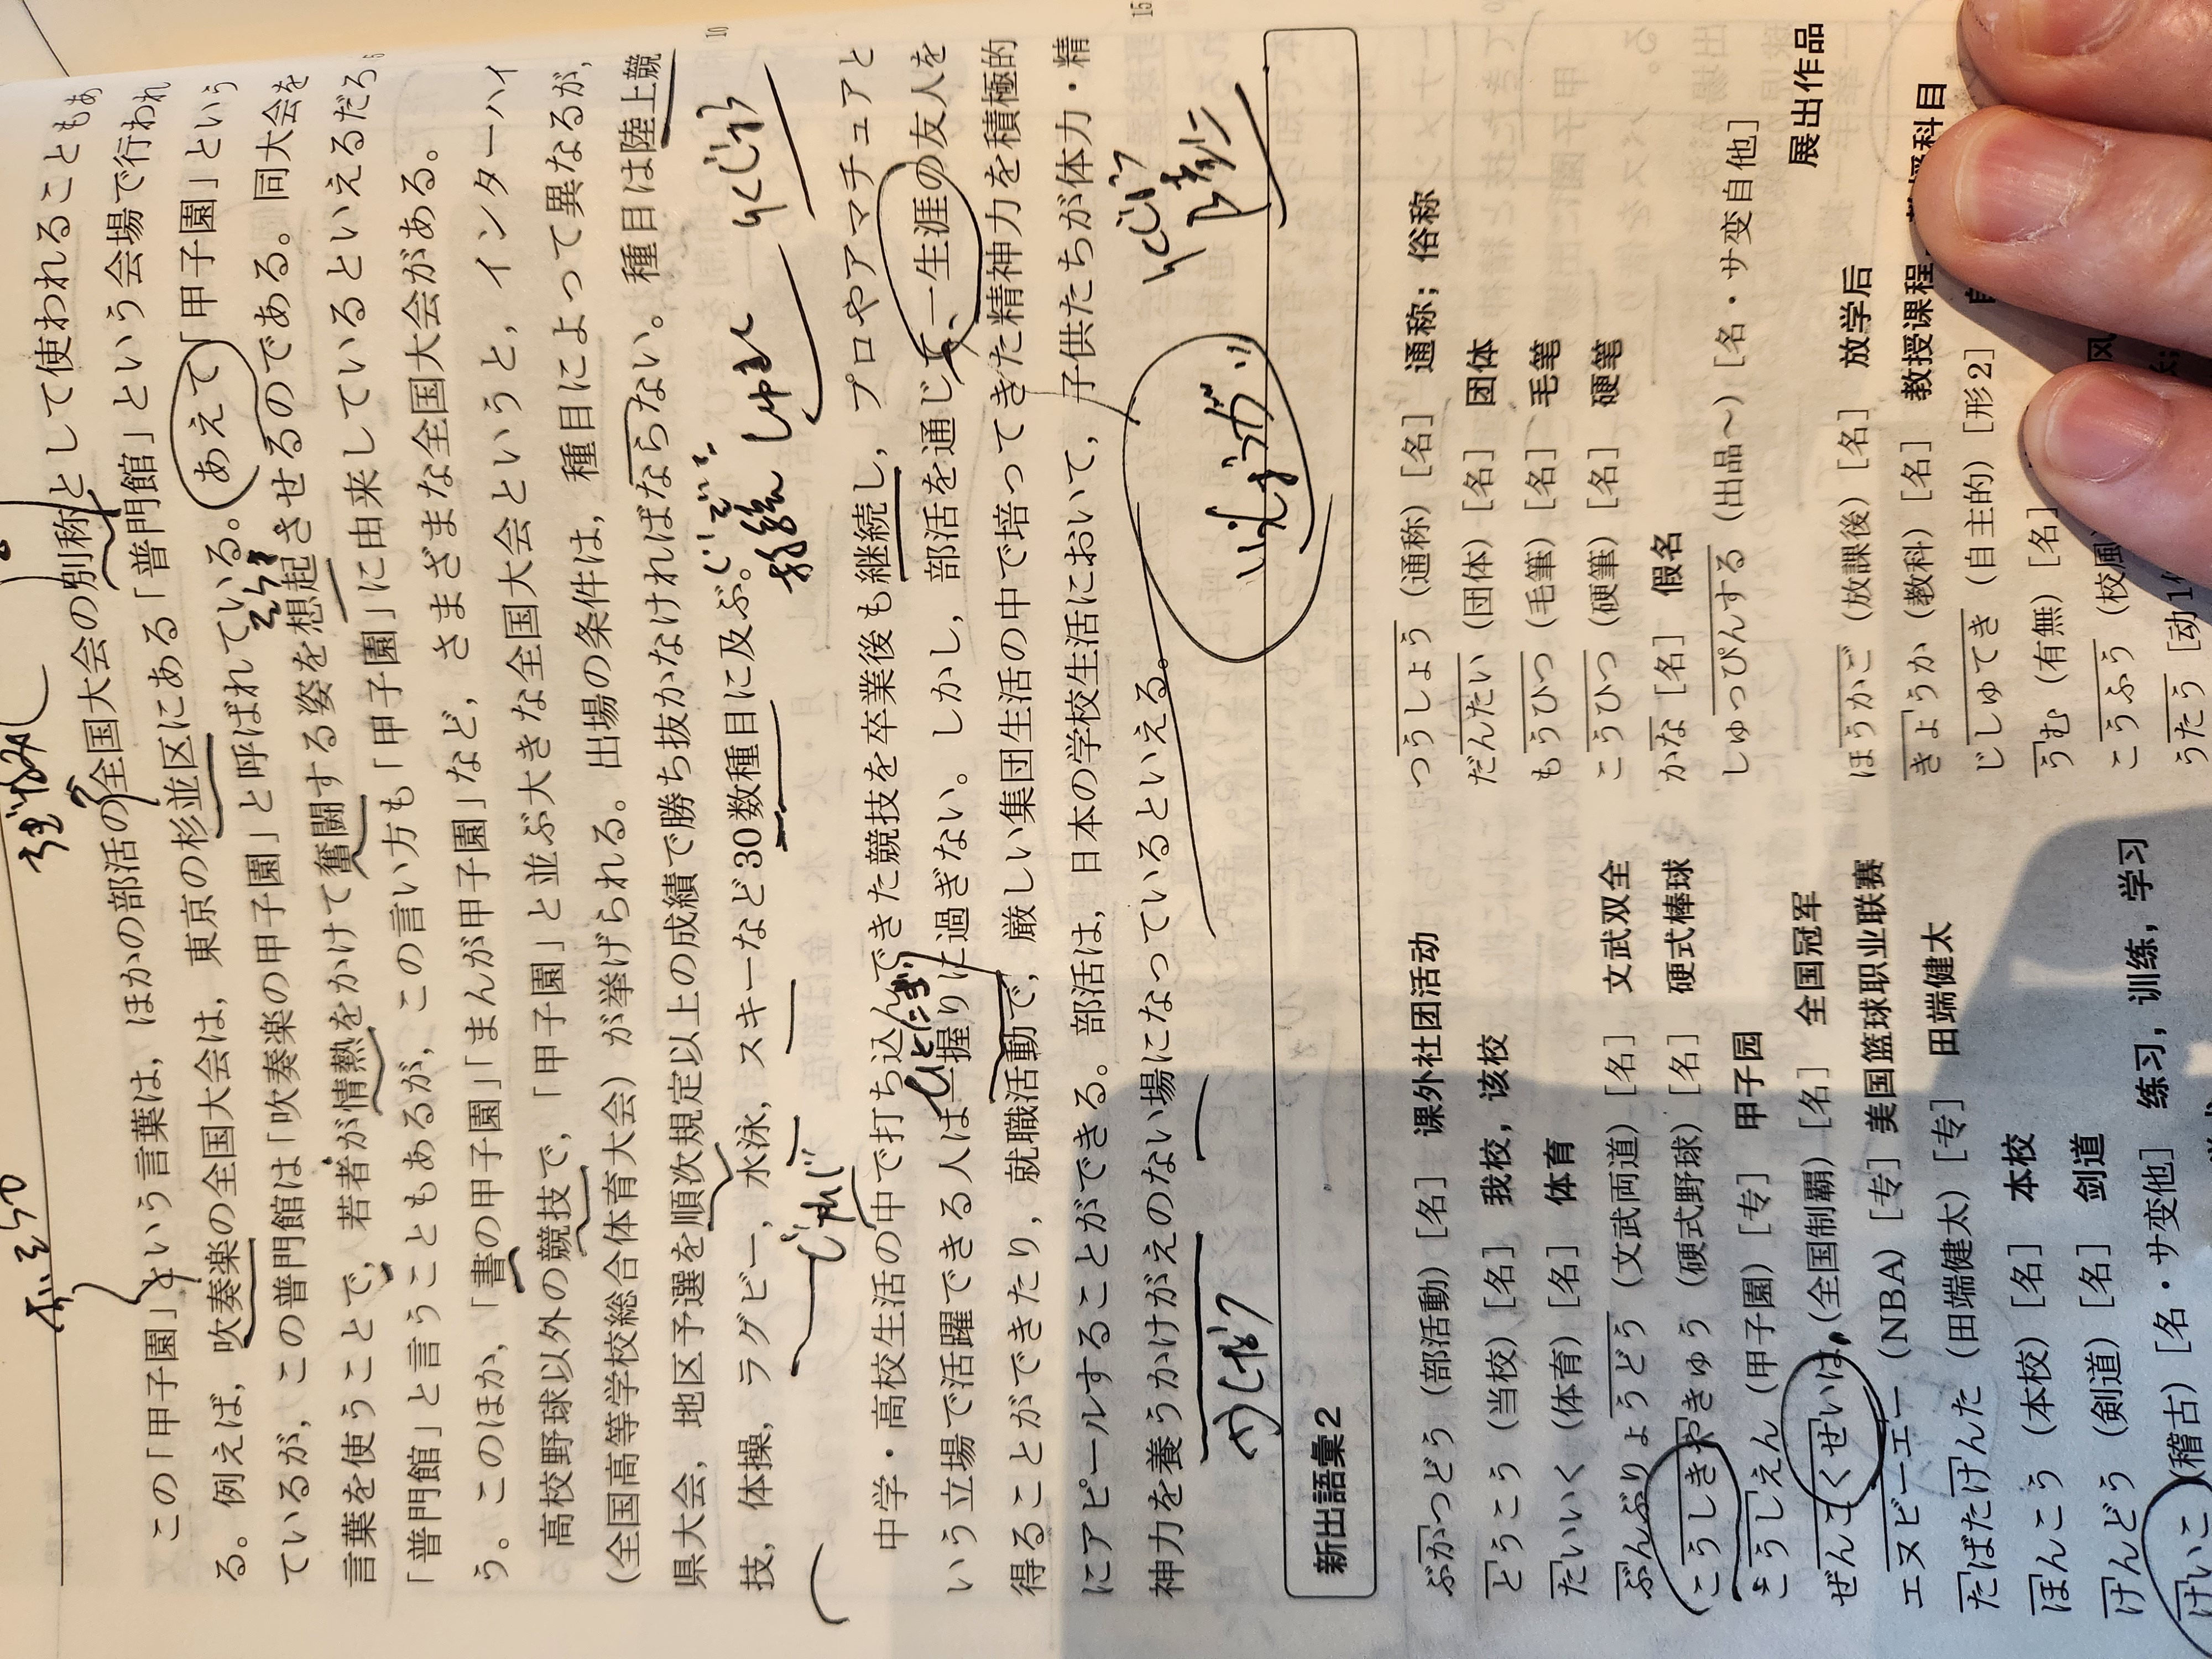 この「甲子園」という言葉は，ほかの部活の全国大会の別称として使われることもあ
る。例えば，吹奏楽の全国大会は，東京の杉並区にある「普門館」という会場で行われ
ているが，この普門館は「吹奏楽の甲子園」と呼ばれている。あえて「甲子園」という
言葉を使うことで，若者が情熱をかけて奮闘する姿を想起させるのである。同大会を
「普門館」と言うこともあるが，この言い方も「甲子園」に由来しているといえるだろ
う。このほか，「書の甲子園」「まんが甲子園」など，さまざまな全国大会がある。
高校野球以外の競技で，「甲子園」と並ぶ大きな全国大会というと，インターハイ
(全国高等学校総合体育大会) が挙げられる。出場の条件は，種目によって異なるが，
県大会，地区予選を順次規定以上の成績で勝ち抜かなければならない。種目は陸上競
技，体操，ラグビー，水泳，スキーなど30数種目に及ぶ。
中学・高校生活の中で打ち込んできた競技を卒業後も継続し，プロやアマチュアと
いう立場で活躍できる人は一握りに過ぎない。しかし，部活を通じて，一生涯の友人を
得ることができたり，就職活動で，厳しい集団生活の中で培ってきた精神力を積極的
にアピールすることができる。部活は，日本の学校生活において，子供たちが体力・精
神力を養うかけがえのない場になっているといえる。
5
10
15
ひとにぎり
いっしょうがい
新出語彙2
ぶかつどう (部活動) [名] 课外社团活动
とうこう (当校) [名] 我校，该校
たいいく (体育) [名] 体育
ぶんぶりょうどう (文武両道) [名] 文武双全
こうしきやきゅう (硬式野球) [名] 硬式棒球
こうしえん (甲子園) [专] 甲子园
ぜんこくせいは (全国制覇) [名] 全国冠军
エヌビーエー (NBA) [专] 美国篮球职业联赛
たばたけんた (田端健太) [专] 田端健太
ほんこう (本校) [名] 本校
けんどう (剣道) [名] 剑道
けいこ (稽古) [名・サ変他] 练习，训练，学习
つうしょう (通称) [名] 通称；俗称
だんたい (団体) [名] 团体
もうひつ (毛筆) [名] 毛笔
こうひつ (硬筆) [名] 硬笔
かな [名] 假名
しゅっぴんする (出品～) [名・サ变自他]
展出作品
ほうかご (放課後) [名] 放学后
きょうか (教科) [名] 教授课程，教授科目
じしゅてき (自主的) [形2]
うむ (有無) [名]
こうふう (校風)
うたう [动1